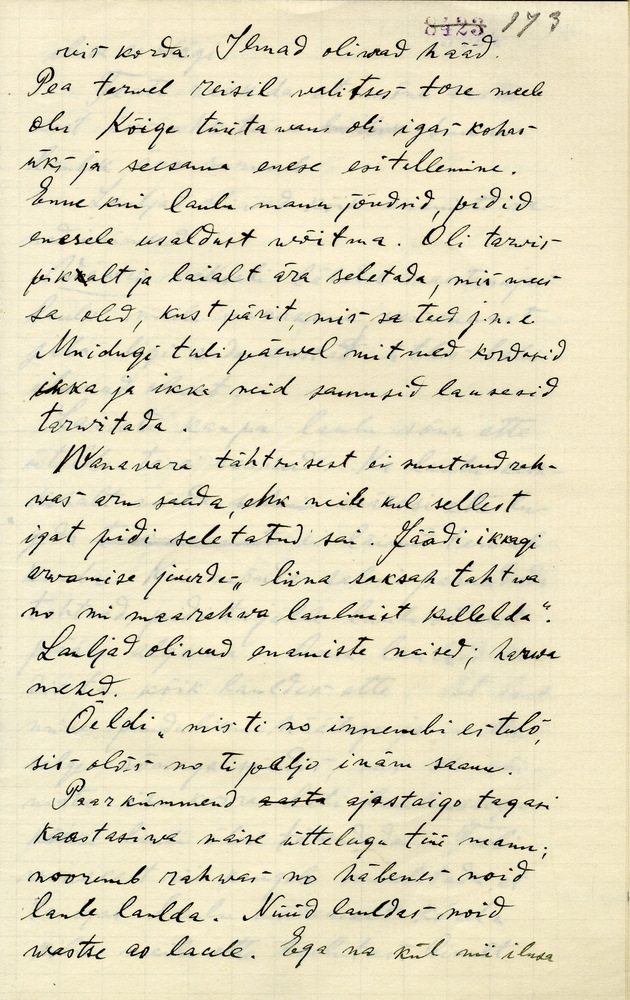 8423 173
vis korda. Ilmad oliwad hääd.
Pea terwel reisil valitses tore meele
olu Kõige tüütawam oli igas kohas
üks ja seesama enese esitellemine.
Enne kui laulu manu jõudsid, pidid
enesele usaldust wõitma. Oli tarwis
pikkalt ja laialt ära seletada, mis mees
sa oled, kust pärit, mis sa teed j.n.e
Muidugi tuli päewal mitmed kordasid
ikka ja ikka neid samusid lausesid
tarwitada.
Wanavara tähtsusest ei suutnud rah-
was aru saada, ehk neile kül sellest
igat pidi seletatud sai. Jäädi ikkagi
arwamise juurde - „liina saksah tahtwa
no mi maarahwa laulmist kullelda".
Lauljad olivad enamiste naised; harwa
mehed.
Öeldi „mis ti no innembi es tulõ,
sis olõs no ti paljo inäm saanu.
Paarkümmend aasta ajastaigo tagasi
kaastasiwa naise üttelugu tüü manu;
nooremb rahwas no häbenes noid
laule laulda. Nüüd lauldas noid
wastse ao laule. Ega na kül nii ilusa